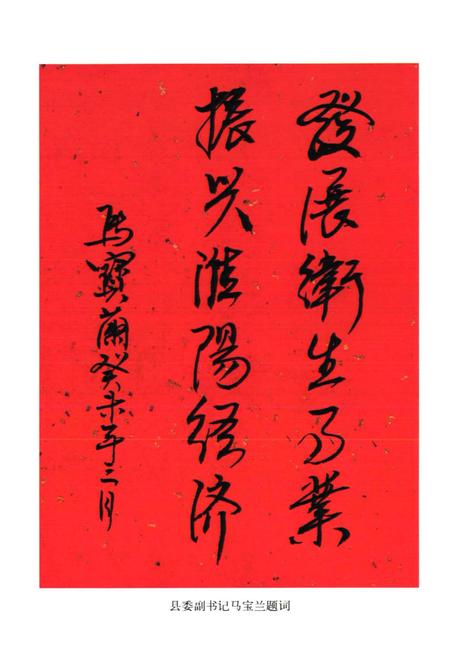 發展衛生事業
振兴淮陽經济
馬寶蘭癸未年三月
县委副书记马宝兰题词